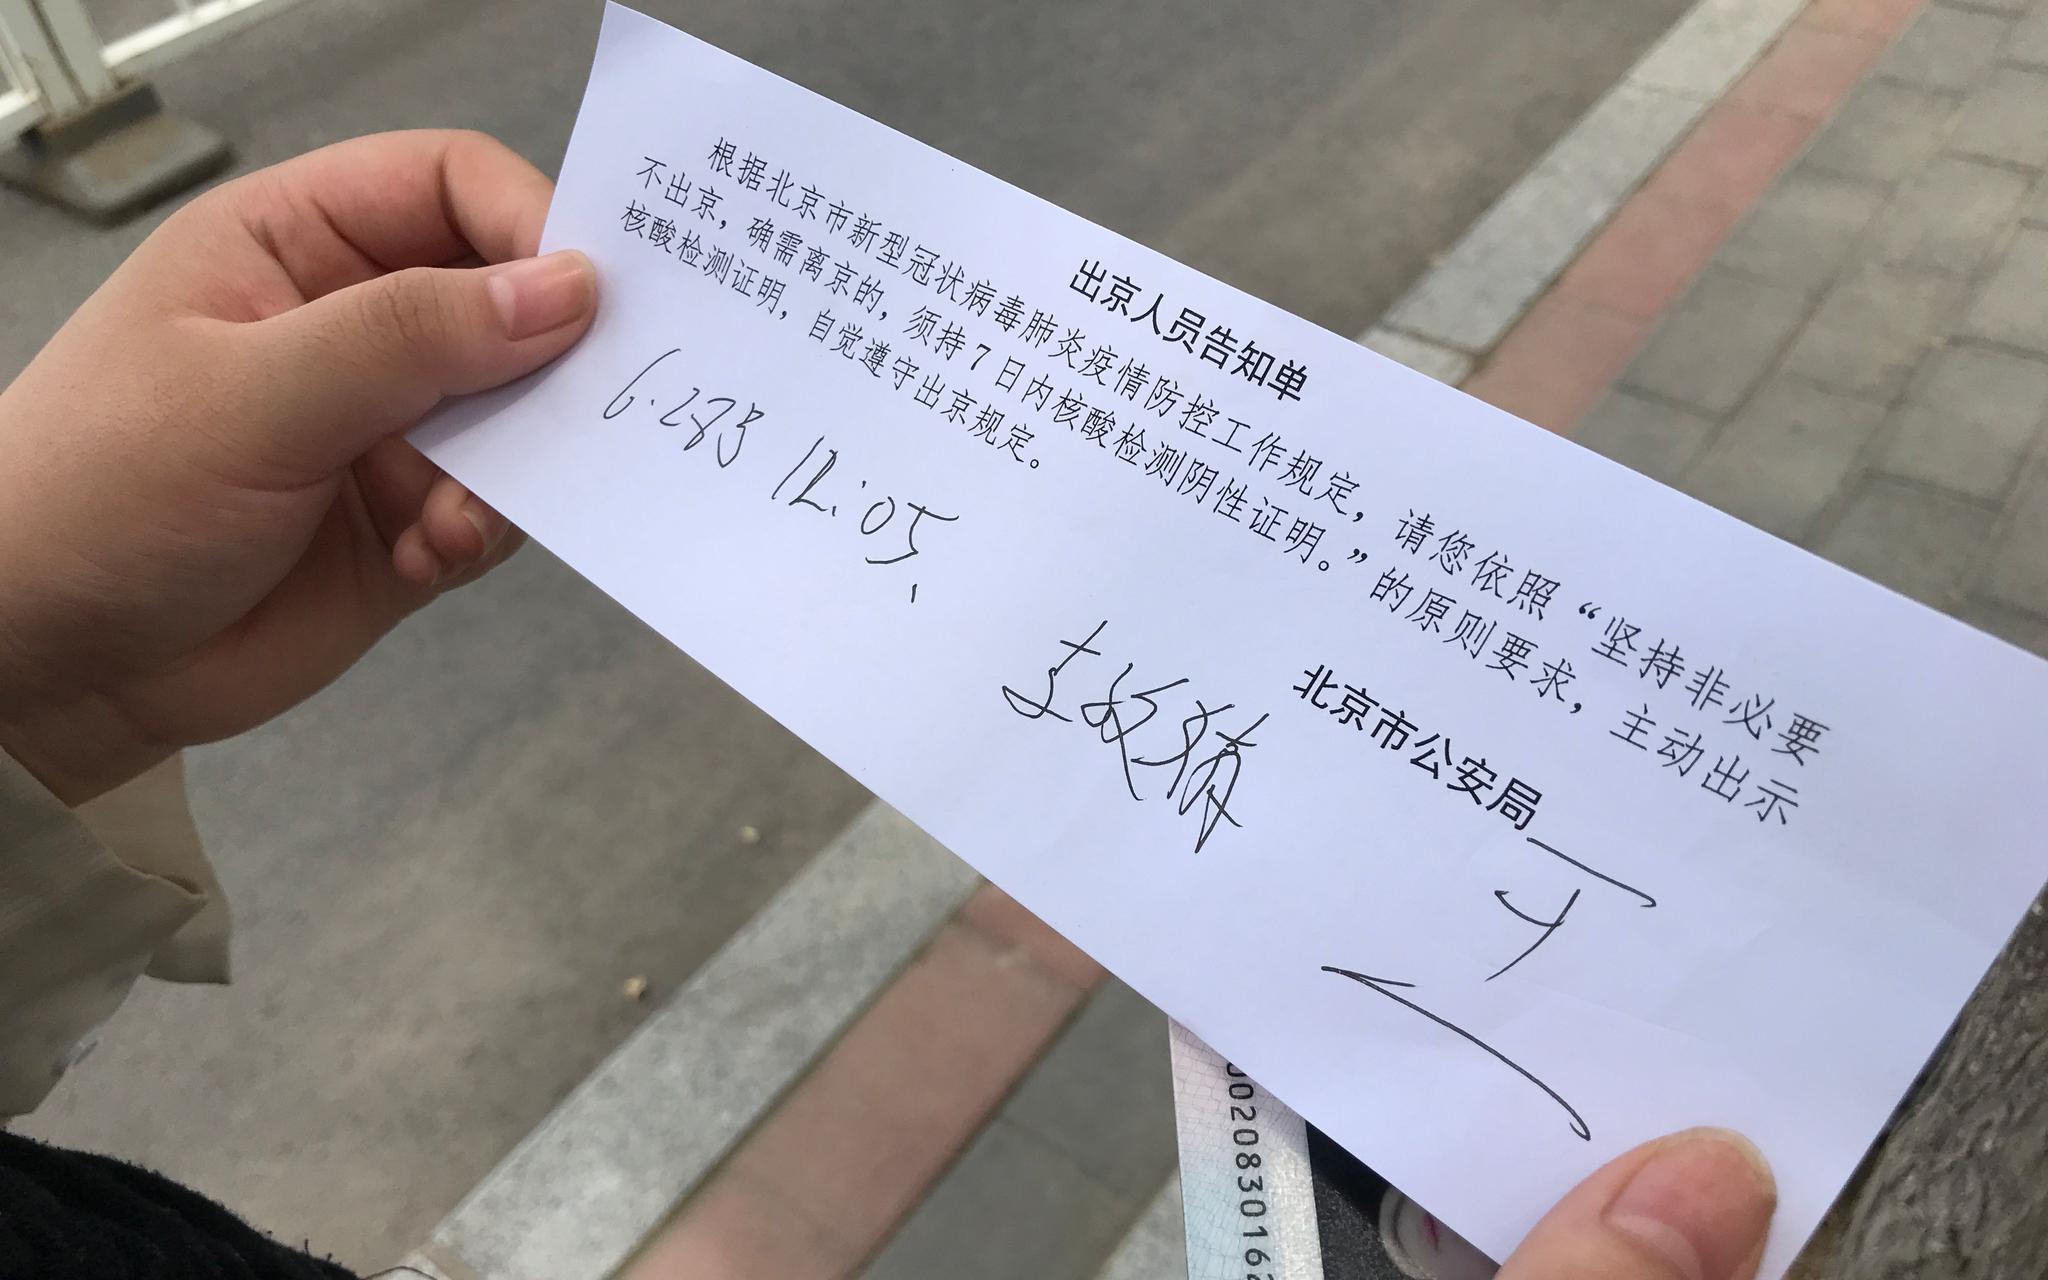 出京人员告知单
根据北京市新型冠状病毒肺炎疫情防控工作规定，请您依照“坚持非必要
不出京，确需离京的，须持7日内核酸检测阴性证明。”的原则要求，主动出示
核酸检测证明，自觉遵守出京规定。
北京市公安局
6.28日 12:05
0020830162